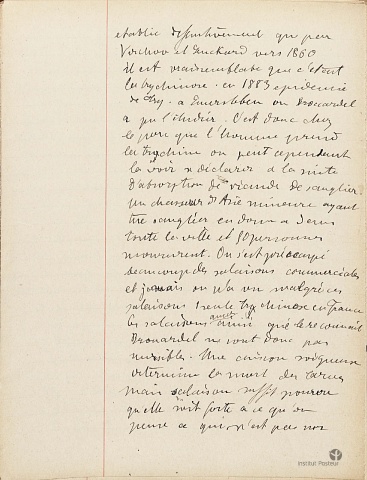 établie définitivement que par
Virchow et Zenckard vers 1860
il est vraisemblable que c'était
la trychinose. en 1883 epidémie
de Try. a Emersleben ou Brouardel
a pu l'étudier. C'est donc chez
le porc que l'homme prend
la trychine on peut cependant
la voir se déclarer a la suite
d'absorption de viande de sanglier
un chasseur d'Asie mineure ayant
tué sanglier en donna a
toute la ville et 50 personnes
moururent. On s'est préoccupé
beaucoup des salaisons commerciales
et jamais on n'a vu malgré ces
salaisons 1 seule trychinose en France
les salaisons ainsi que le reconnait
Brouardel ne sont donc pas
nuisibles. Une cuisson soigneuse
détermine la mort des larves
mais salaison suffit pourvu
qu'elle soit forte a ce qu'on
pense ce qui n'est pas
Institut Pasteur